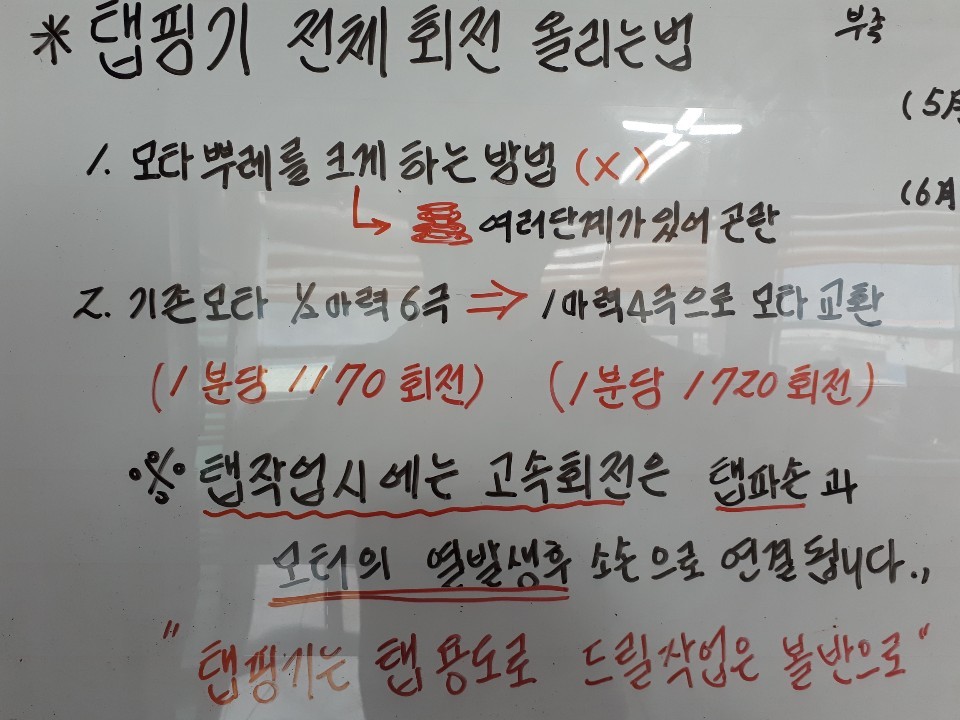 * 탭핑기 전체 회전 올리는법
부족
(5月
(6月
1. 모타뿌레를 크게 하는 방법 (X)
여러단계가 있어 곤란
2. 기존모타 ½마력 6극 ⇒ 1마력4극으로 모타교환
(1분당 1170 회전) (1분당 1720회전)
※ 탭작업시에는 고속회전은 탭파손과
모터의 열발생후 소손으로 연결됩니다.,
"탭핑기는 탭용도로 드릴작업은 볼반으로"